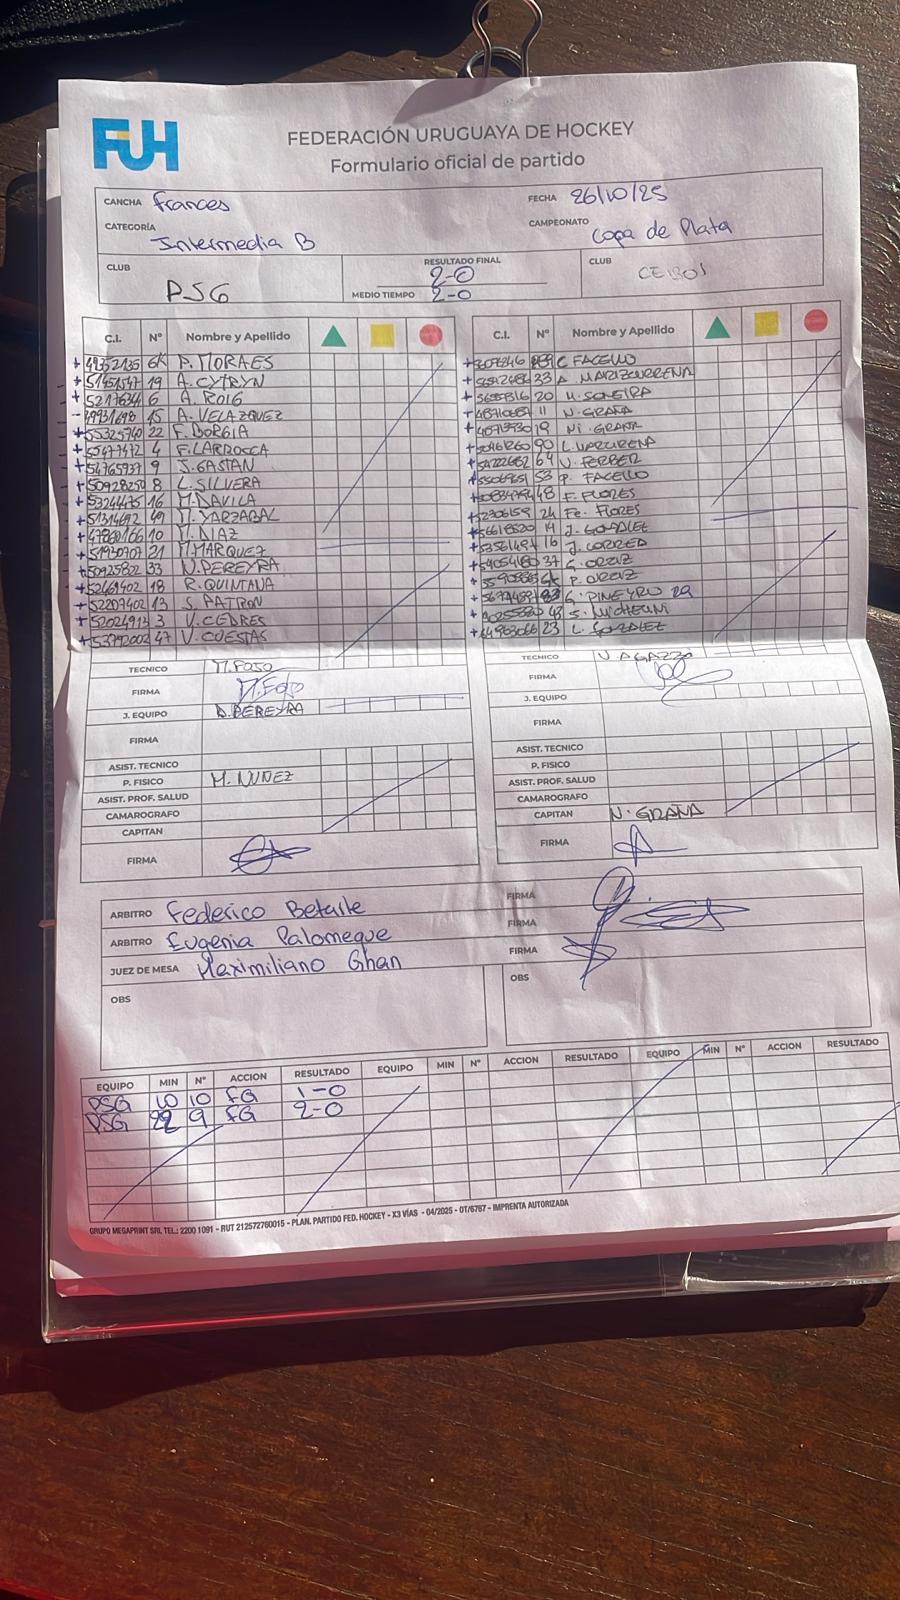 FUH
FEDERACIÓN URUGUAYA DE HOCKEY
Formulario oficial de partido
CANCHA Frances FECHA 26/10/25
CATEGORÍA Intermedia B CAMPEONATO Copa de Plata
CLUB PSG RESULTADO FINAL 2-0 CLUB CEIBOS
MEDIO TIEMPO 2-0
C.I. Nº Nombre y Apellido
+ 49352135 GK P. MORAES
+ 51451547 19 A. CYTRYN
+ 5217634 6 A. ROIG
- 49931698 15 A. VELAZQUEZ
+ 55325740 22 F. BORGIA
+ 55477472 4 F. LARROSCA
+ 54765937 9 J. GASTAN
+ 50928250 8 L. SILVERA
+ 53244475 16 M. DAVILA
+ 51314692 49 M. YARZABAL
+ 47860166 10 M. DIAZ
+ 51930707 21 M. MARQUEZ
+ 50925802 33 N. PEREYRA
+ 52469402 18 R. QUINTANA
+ 52207402 13 S. PATRON
+ 52024913 3 V. CEDRES
+ 53792002 47 V. CUESTAS
TECNICO M. FOSO
FIRMA
J. EQUIPO D. PEREYRA
FIRMA
ASIST. TECNICO
P. FISICO M. NUÑEZ
ASIST. PROF. SALUD
CAMAROGRAFO
CAPITAN
FIRMA
C.I. Nº Nombre y Apellido
C FACELLO
33 A. MARIZCURRENA
20 M. SONEIRA
11 N. GRAÑA
19 Ni. GRAÑA
90 L.
64 V. FERBER
53 P. FACELLO
48 F. FLORES
24 Fe. FLORES
14 J. GONZALEZ
16 J. CORREA
37 G. ORTIZ
GK P. ORTIZ
G. PIÑEYRO 29
43 S. MICHELINI
23 L. GONZALEZ
TECNICO N. AGAZZO
FIRMA
J. EQUIPO
FIRMA
ASIST. TECNICO
P. FISICO
ASIST. PROF. SALUD
CAMAROGRAFO
CAPITAN N. GRAÑA
FIRMA
ARBITRO Federico Betarte FIRMA
ARBITRO Eugenia Palomeque FIRMA
JUEZ DE MESA Maximiliano Ghan FIRMA
OBS OBS
EQUIPO MIN Nº ACCION RESULTADO EQUIPO MIN Nº ACCION RESULTADO EQUIPO MIN Nº ACCION RESULTADO
PSG 10 10 FG 1-0
PSG 22 9 FG 2-0
GRUPO MEGAPRINT SRL TEL.: 2200 1091 - RUT 212572760015 - PLAN. PARTIDO FED. HOCKEY - X3 VÍAS - 04/2025 - OT/6767 - IMPRENTA AUTORIZADA